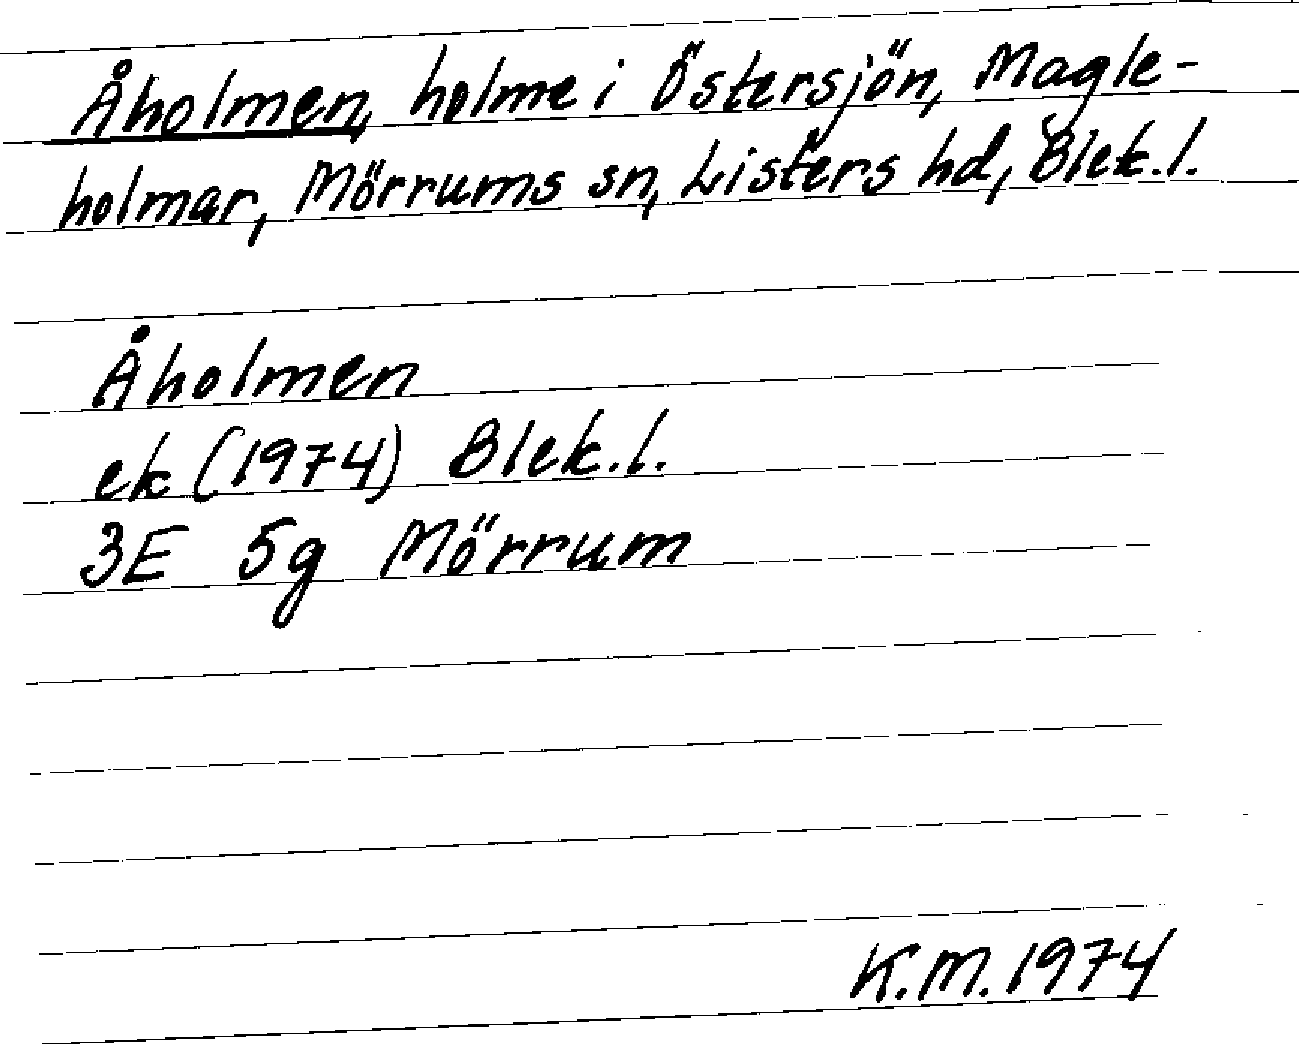 Åholmen, holme i Östersjön, Magle-
holmar, Mörrums sn, Listers hd, Blek.l.
Åholmen
ek (1974) Blek.l.
3E 5g Mörrum
K.M. 1974